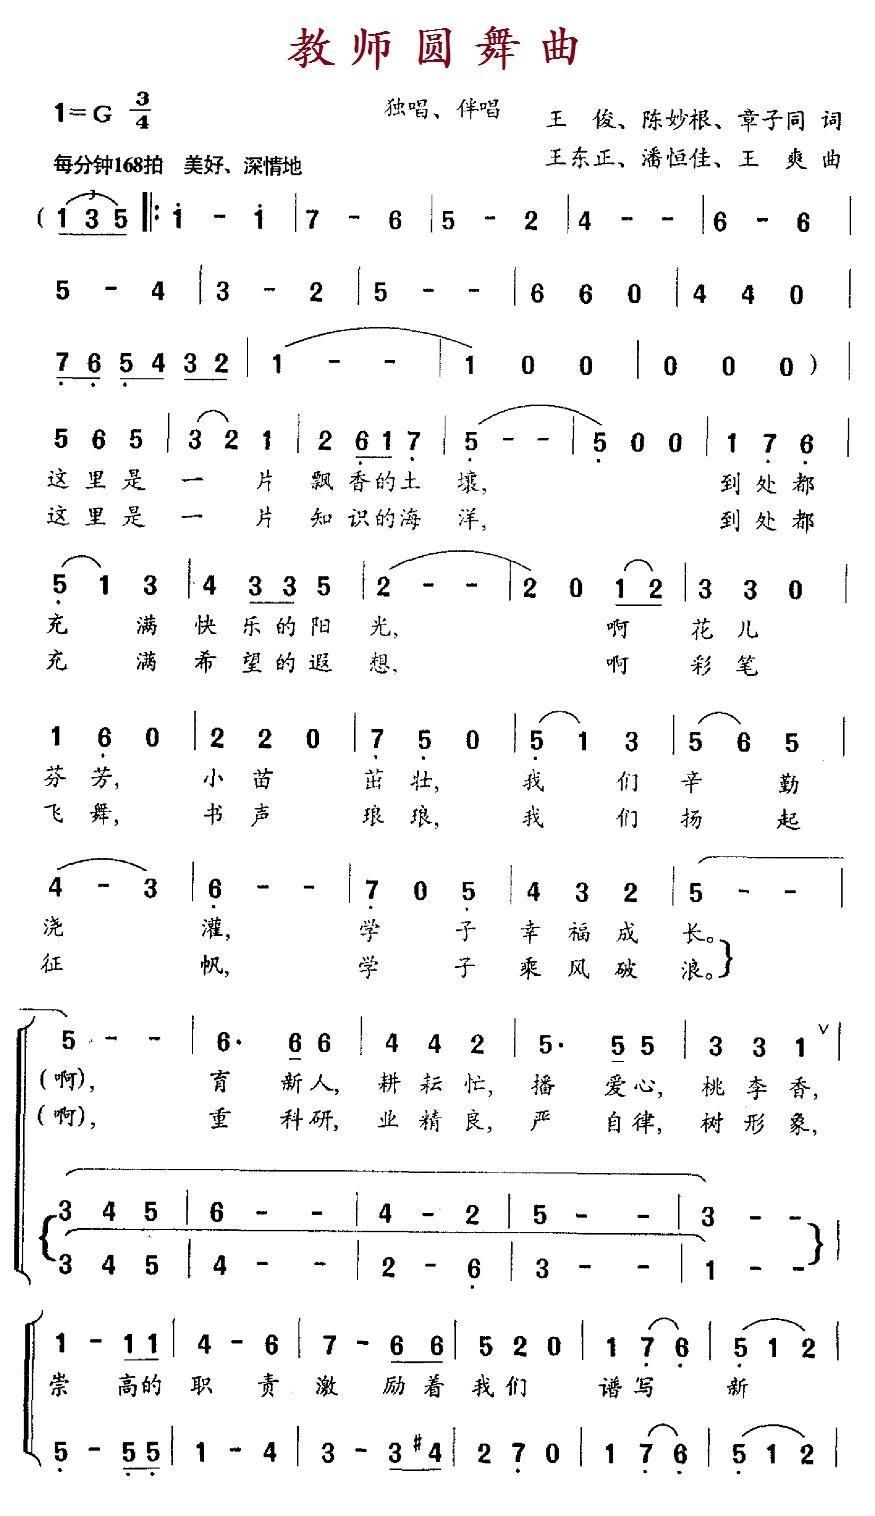 教师圆舞曲
1=G 3/4
独唱、伴唱
王 俊、陈妙根、章子同 词
每分钟168拍 美好、深情地
王东正、潘恒佳、王 爽 曲
( 1 3 5 ‖: 1 - 1 | 7 - 6 | 5 - 2 | 4 - - | 6 - 6 |
5 - 4 | 3 - 2 | 5 - - | 6 6 0 | 4 4 0 |
7 6 5 4 3 2 | 1 - - | 1 0 0 | 0 0 0 ) |
5 6 5 | 3 2 1 | 2 6 1 7 | 5 - - | 5 0 0 | 1 7 6
这里是 一 片 飘香的土 壤, 到处都
这里是 一 片 知识的海 洋, 到处都
5 1 3 | 4 3 3 5 | 2 - - | 2 0 1 2 | 3 3 0
充 满 快乐的阳 光, 啊 花儿
充 满 希望的遐 想, 啊 彩笔
1 6 0 | 2 2 0 | 7 5 0 | 5 1 3 | 5 6 5 |
芬芳, 小苗 茁壮, 我 们 辛 勤
飞舞, 书声 琅琅, 我 们 扬 起
4 - 3 | 6 - - | 7 0 5 | 4 3 2 | 5 - - |
浇 灌, 学 子 幸福成 长。
征 帆, 学 子 乘风破 浪。}
5 - - | 6· 6 6 | 4 4 2 | 5· 5 5 | 3 3 1 ∨ |
(啊), 育 新人, 耕耘忙, 播 爱心, 桃李香,
(啊), 重 科研, 业精良, 严 自律, 树形象,
{ 3 4 5 | 6 - - | 4 - 2 | 5 - - | 3 - - }
3 4 5 | 4 - - | 2 - 6 | 3 - - | 1 - - |
1 - 1 1 | 4 - 6 | 7 - 6 6 | 5 2 0 | 1 7 6 | 5 1 2 |
崇 高的 职 责 激 励着 我们 谱写 新
5 - 5 5 | 1 - 4 | 3 - 3 #4 | 2 7 0 | 1 7 6 | 5 1 2 |